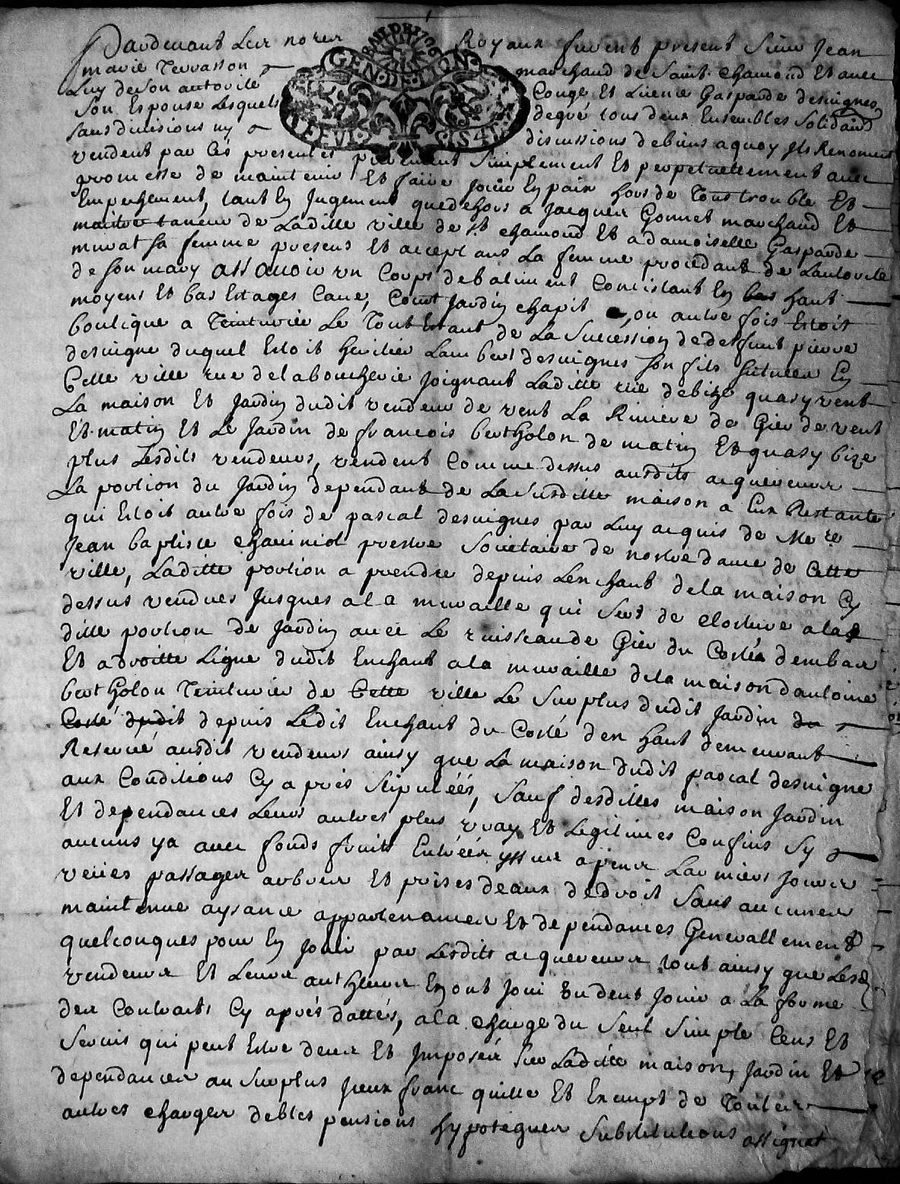 Pardevant Les nores Royaux furent present Sieur Jean
marie Terrasson marchand de Saint Chamond Et avec
Luy de son autorité Congé Et Licence Gasparde desvignes
Son Espouse Lesquels degré tous deux Ensembles Solidaire
sans divisions ny discussions de biens a quoy Ils Renoncent
GEN·DE·LION
vendent par Ces presentes purement Simplement Et perpetuellement avec
promesse de maintenir Et faire Jouir En paix hors de Tous trouble Et
Empechement, tant En Jugement que dehors a Jacques Gonnet marchand Et
de Laditte ville de St Chamond Et a damoiselle Gasparde
murat sa femme presens Et acceptans La femme procédant de Lautorité
de son mary assavoir un Corps de batiment Concistant En bas haut
moyens Et bas Estages Cave, Court Jardin chapit, ou autre fois Estoit
boutique a Teinturier Le Tout Estant de La Succession de deffunt pierre
desvigne duquel Estoit heritier Lambert desvignes son fils Situées En
Cette ville rue de la boucherie Joignant Laditte rue de bize quasy vent
La maison Et Jardin dudit vendeur de vent La Riviere de Gier de vent
Et matin Et Le Jardin de francois bertholon de matin Et quasy bize
plus Lesdits vendeurs, vendent Comme dessus ausdits acquereurs
La portion du Jardin dependant de La Susditte maison a Eux Restante
qui Estoit autre fois de pascal desvignes par Luy acquis de Mre
Jean baptiste prestre Societaire de nostre dame de Cette
ville, Laditte portion a prendre depuis Lenchant de la maison Cy
dessus vendues Jusques a la muraille qui Sert de closture a la
ditte portion de Jardin avec Le ruisseau de Gier du Costé dembas
Et a droitte Ligne dudit Enchant a la muraille de la maison dantoine
bertholon Teinturier de Cette ville Le Surplus dudit Jardin du
Costé dudit depuis Ledit Enchant du Costé den haut demeurant
Reservé ausdit vendeurs ainsy que La maison dudit pascal desvigne
aux Conditions Cy apres Stipulées, Sauf desdittes maison Jardin
Et dependances Leurs autres plus vray Et Legitimes Confins Sy
aucuns y a avec fonds fruits Entrées yssues a
veües passages arbres Et prises deaux dedroit Sans aucunes
maintenue aysance appartenances Et dependances Generallement
quelconques pour En Jouir par Lesdits acquereurs tout ainsy que Les
vendeurs Et Leurs autheurs En ont Joui Jouir a La forme
des Contracts Cy aprés dattés, a la Charge du Seul Simple Cens Et
Servis qui peut Estre deux Et Imposés Sur Laditte maison, Jardin Et
dependances au Surplus Iceux franc quitte Et Exempt de Toutes
autres charges debtes pensions hypoteques Substitutions assignat